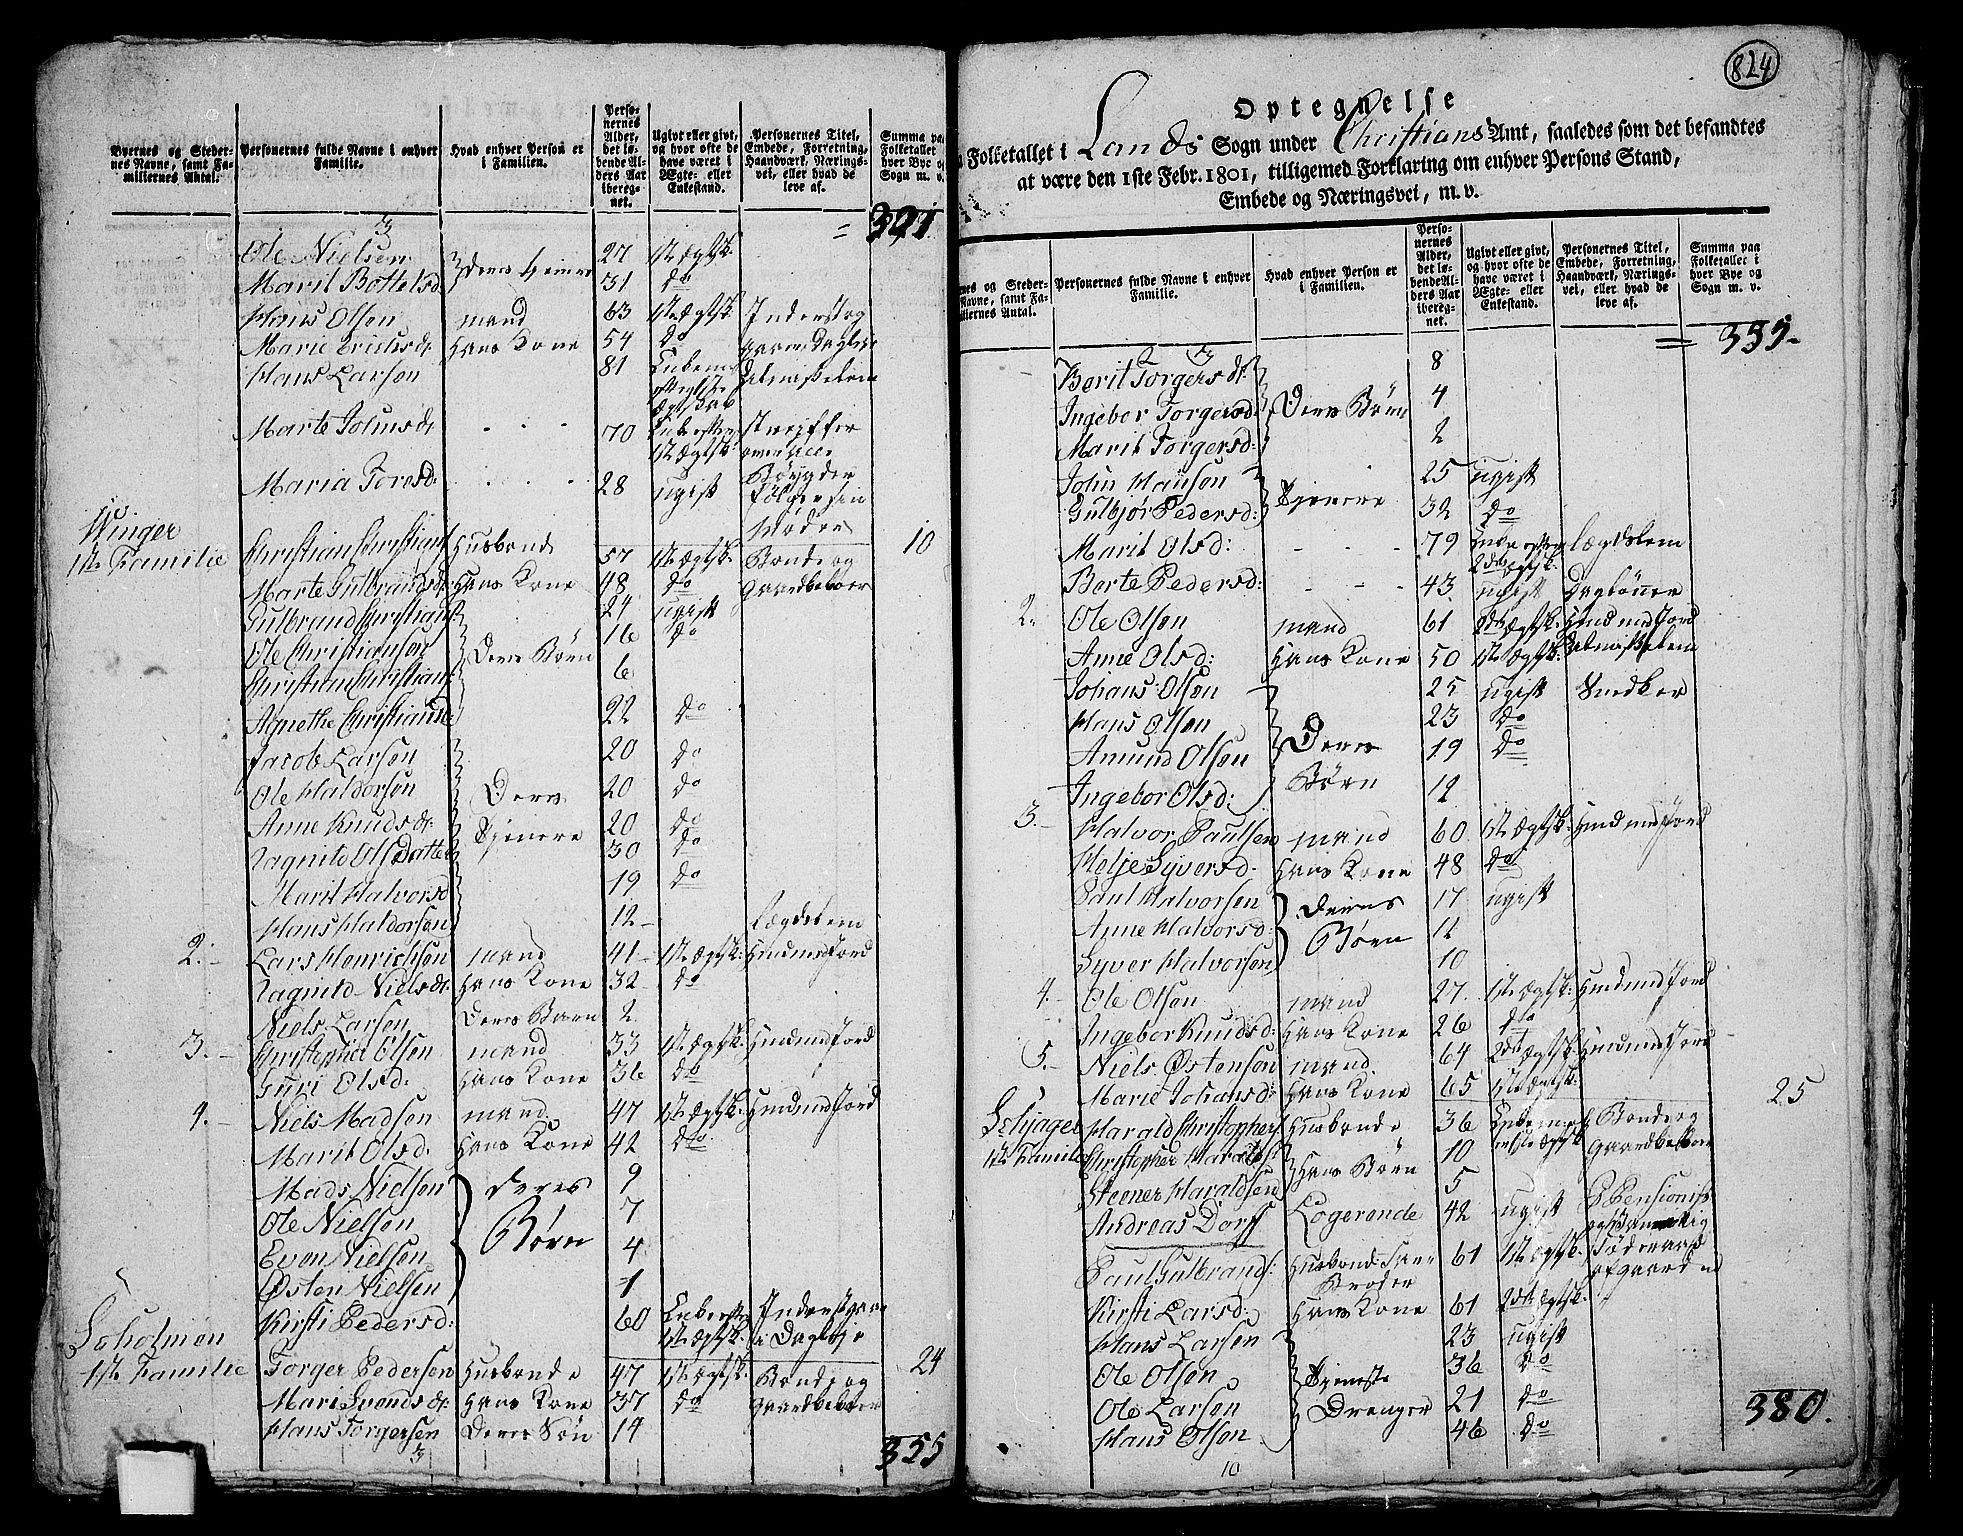 Byernes og Stedernes Navne, samt Familiernes Antal.
Personernes fulde Navne i enhver Familie.
Hvad enhver Person er i Familien.
Personernes Alder, det løbende Alders Aar iberegnet.
Ugivt eller givt, og hvor ofte de have været i Ægte- eller Enkestand.
Personernes Titel, Embede, Forretning, Haandværk, Næringsvei, eller hvad de leve af.
Summa paa Folketallet hver Bye og Sogn m. v.
3
Ole Nielsen 27 1ste Ægtsk.
Marit Bottelsd 31 do
Hans Olsen mand 63 1ste Ægtsk
Marie Erichsdr Hans Kone 54 do
Hans Larsen 81
Marte Johnsdr 70
Maria Toresd. 28 ugift
Winger
1ste Familie Christian Christians Husbonde 57 1ste Ægtsk. Bonde og 10
Marte Gulbrandsdr Hans Kone 48 do Gaardbeboer
Gulbrand Christians 24 ugift
Ole Christiansen Deres Børn 16 do
Christian Christians 6
Agnethe Christiansd 22 do
Jacob Larsen 20 do
Ole Haldorsen Deres 20 do
Anne Knudsdr. Tjenere 20 do
Ragnild Olsdatter 30 do
Marit Halvorsd 19 do
Hans Haldorsen 12 Lægdslem
2. Lars Henrichsen mand 41 1ste Ægtsk. Huusmed Jord
Ragnild Nielsdr. Hans Kone 32 do
Niels Larsen Deres Barn 2
3. Christopher Olsen mand 33 1ste Ægtsk. Huusmed Jord
Guri Olsd. Hans Kone 36 do
4. Niels Madsen mand 47 1ste Ægtsk. Huusmed Jord
Marit Olsd. Hans Kone 42 do
Mads Nielsen deres 9
Ole Nielsen Børn 7
Even Nielsen 4
Østen Nielsen 1
Kirsti Pedersd: 60
Soholmen
1ste Familie Torger Pedersen Husbonde 47 1ste Ægtsk. Bonde og 24
Mari Svendsdr. Hans Kone 37 do Gaardbeboer
Hans Torgersen Deres Søn 14
3
355
824
Optegnelse
Folketallet i Lands Sogn under Christians Amt, saaledes som det befandtes
at være den 1ste Febr. 1801, tilligemed Forklaring om enhver Persons Stand,
Embede og Næringsvei, m. v.
Personernes fulde Navne i enhver Familie.
Hvad enhver Person er i Familien.
Personernes Alder, det løbende Alders Aar iberegnet.
Ugivt eller givt, og hvor ofte de have været i Ægte- eller Enkestand.
Personernes Titel, Embede, Forretning, Haandværk, Næringsvei, eller hvad de leve af.
Summa paa Folketallet i hver Bye og Sogn m. v.
Berit Torgersdr. 8
Ingebor Torgersd. Deres Børn 4
Marit Torgersd: 2
John Hansen 25 ugift
Gulbjør Pedersd: Tjenere 32 do
Marit Olsd: 79 Lægdslem
Berte Pedersd: 43 ugift
2. Ole Olsen mand 61 2det Ægtsk. Huusmed Jord
Anne Olsd: Hans Kone 50 1ste Ægtsk. Almisselem
Johans Olsen 25 ugift Snedker
Hans Olsen 23 do
Amund Olsen Deres 19 do
Ingebor Olsd: Børn 12
3. Halvor Paulsen mand 60 1ste Ægtsk. Huusmed Jord
Helje Syversd. Hans Kone 48 do
Paul Halvorsen deres 17 ugift
Anne Halvorsd: Børn 12
Syver Halvorsen 10
4. Ole Olsen mand 27 1ste Ægtsk: Huusmed Jord
Ingebor Knudsd: Hans Kone 26 do
5. Niels Østensen mand 64 2det Ægtsk. Huusmed Jord
Marie Johansd: Hans Kone 65 1ste Ægtsk. 25
Harald Christophers Husbonde 36 Bonde og
1ste Familie Christopher Haralds 10 Gaardbeboer
Steener Haraldsen Hans Børn 5
Andreas Dorff Logerende 42 ugift
Paul Gulbrands: 61 1ste Ægtsk.
Kirsti Larsd. Hans Kone 61 2det Ægtsk.
Hans Larsen 23 ugift
Ole Olsen Tjeneste 36 do
Ole Larsen Drenger 21 do
Hans Olsen 46 do
10
380.